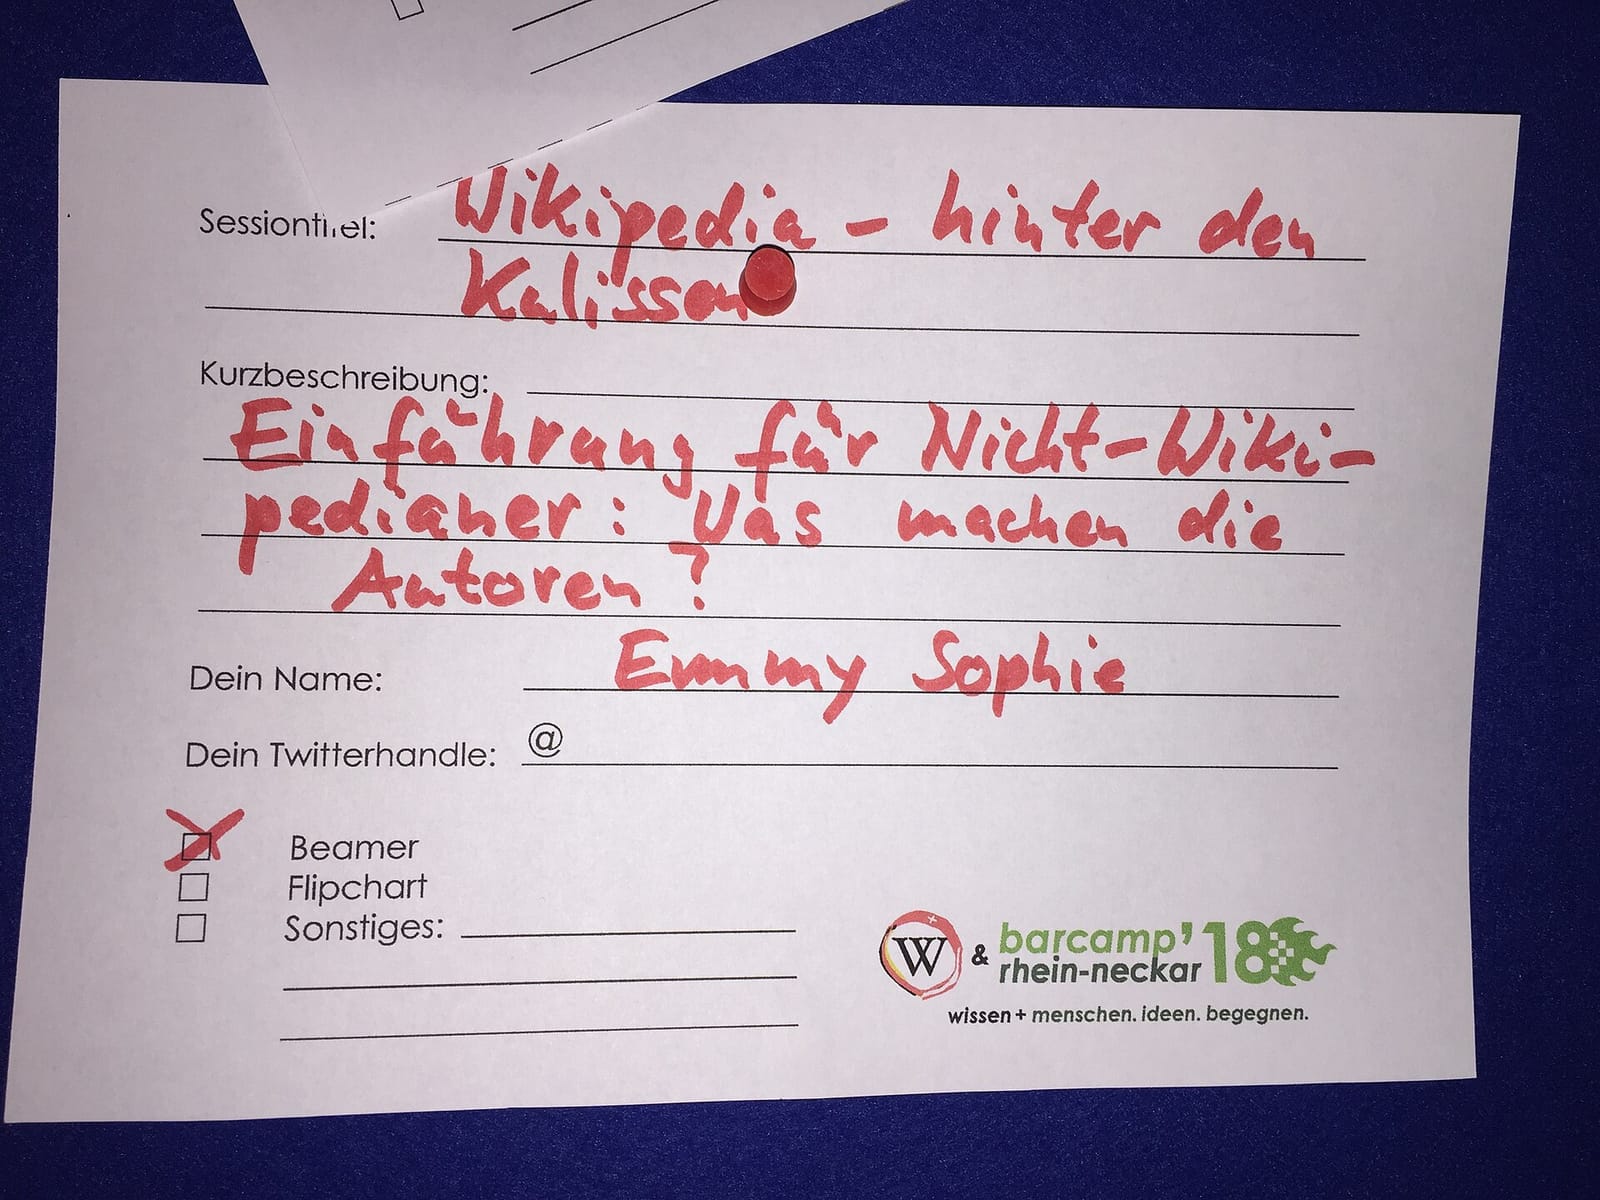 Sessiontitel: Wikipedia – hinter den
Kulissen
Kurzbeschreibung:
Einführung für Nicht-Wiki-
pedianer: Was machen die
Autoren?
Dein Name: Emmy Sophie
Dein Twitterhandle: @
Beamer
Flipchart
Sonstiges:
W & barcamp'18
rhein-neckar
wissen + menschen. ideen. begegnen.